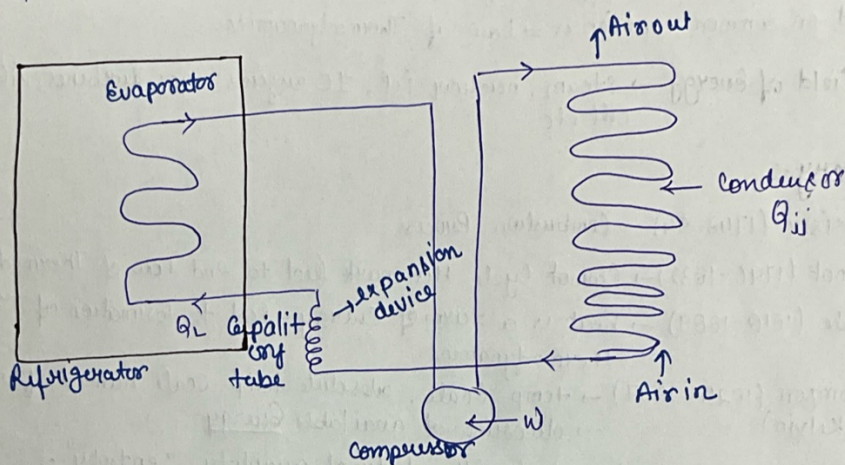 Air out
Evaporator
Condensor
Q
expansion
device
QL
Capalit-
ory
tube
Refrigerator
Air in
W
Compressor